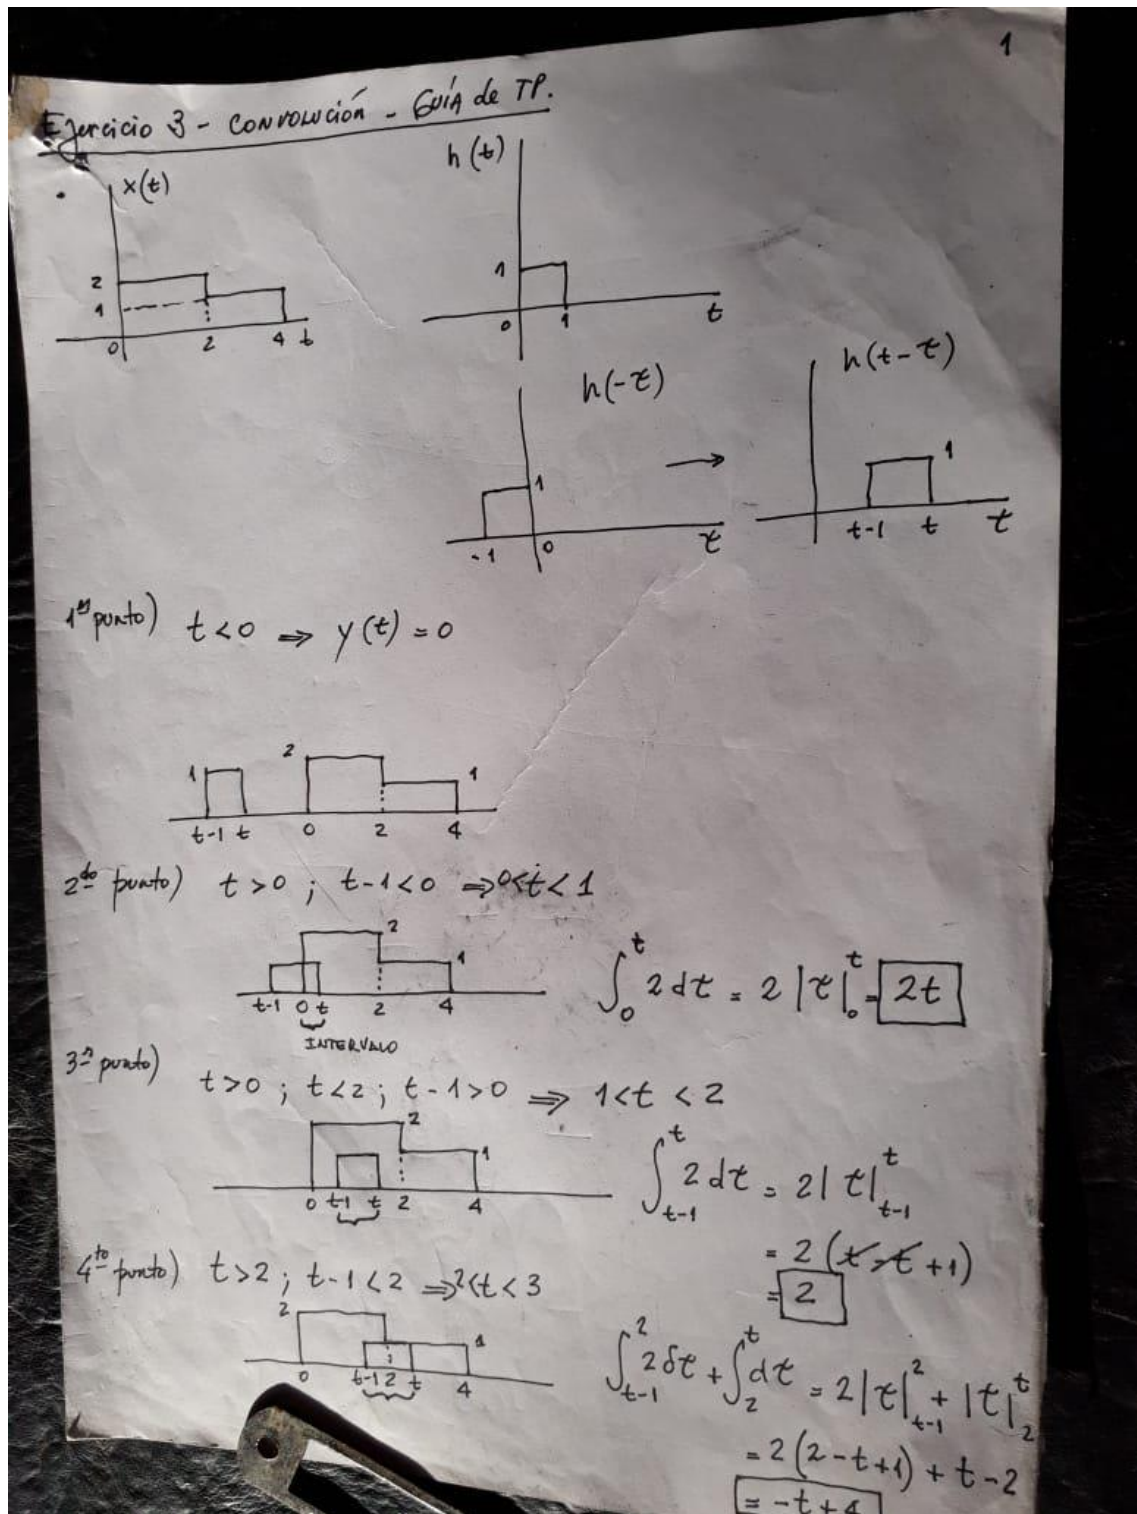 1
Ejercicio 3 - CONVOLUCIÓN - GUÍA de TP.
x(t)
2
1
0 2 4 t
h(t)
1
0 1 t
h(-τ)
1
-1 0 τ
→
h(t-τ)
1
t-1 t τ
1er punto) t<0 ⇒ y(t) = 0
1 2 1
t-1 t 0 2 4
2do punto) t>0 ; t-1<0 ⇒ 0<t<1
2 1
t-1 0 t 2 4
INTERVALO
∫₀ᵗ 2 dτ = 2 |τ|₀ᵗ = 2t
3er punto) t>0 ; t<2 ; t-1>0 ⇒ 1<t<2
2 1
0 t-1 t 2 4
∫ₜ₋₁ᵗ 2 dτ = 2 |τ|ₜ₋₁ᵗ
= 2 (t-t+1)
= 2
4to punto) t>2 ; t-1<2 ⇒ 2<t<3
2 1
0 t-1 2 t 4
∫ₜ₋₁² 2 δτ + ∫₂ᵗ dτ = 2 |τ|ₜ₋₁² + |τ|₂ᵗ
= 2 (2-t+1) + t-2
= -t+4